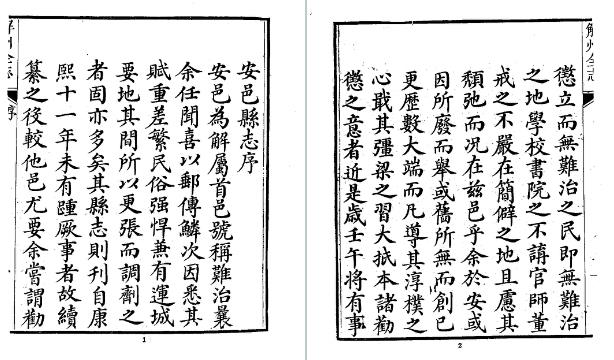 安邑縣志序
安邑為解屬首邑號稱難治曩
余任聞喜以郵傳鱗次因悉其
賦重差繁民俗强悍兼有運城
要地其間所以更張而調劑之
者固亦多矣其縣志則刊自康
熙十一年未有踵厥事者故續
纂之後較他邑尤要余嘗謂勸
解州全志
1
解州全志
懲立而無難治之民即無難治
之地學校書院之不講官師董
戒之不嚴在簡僻之地且慮其
頽弛而况在兹邑乎余於安或
因所廢而舉或舊所無而創已
更歷數大端而凡導其淳樸之
心戢其彊梁之習大抵本諸勸
懲之意者近是歲壬午將有事
2